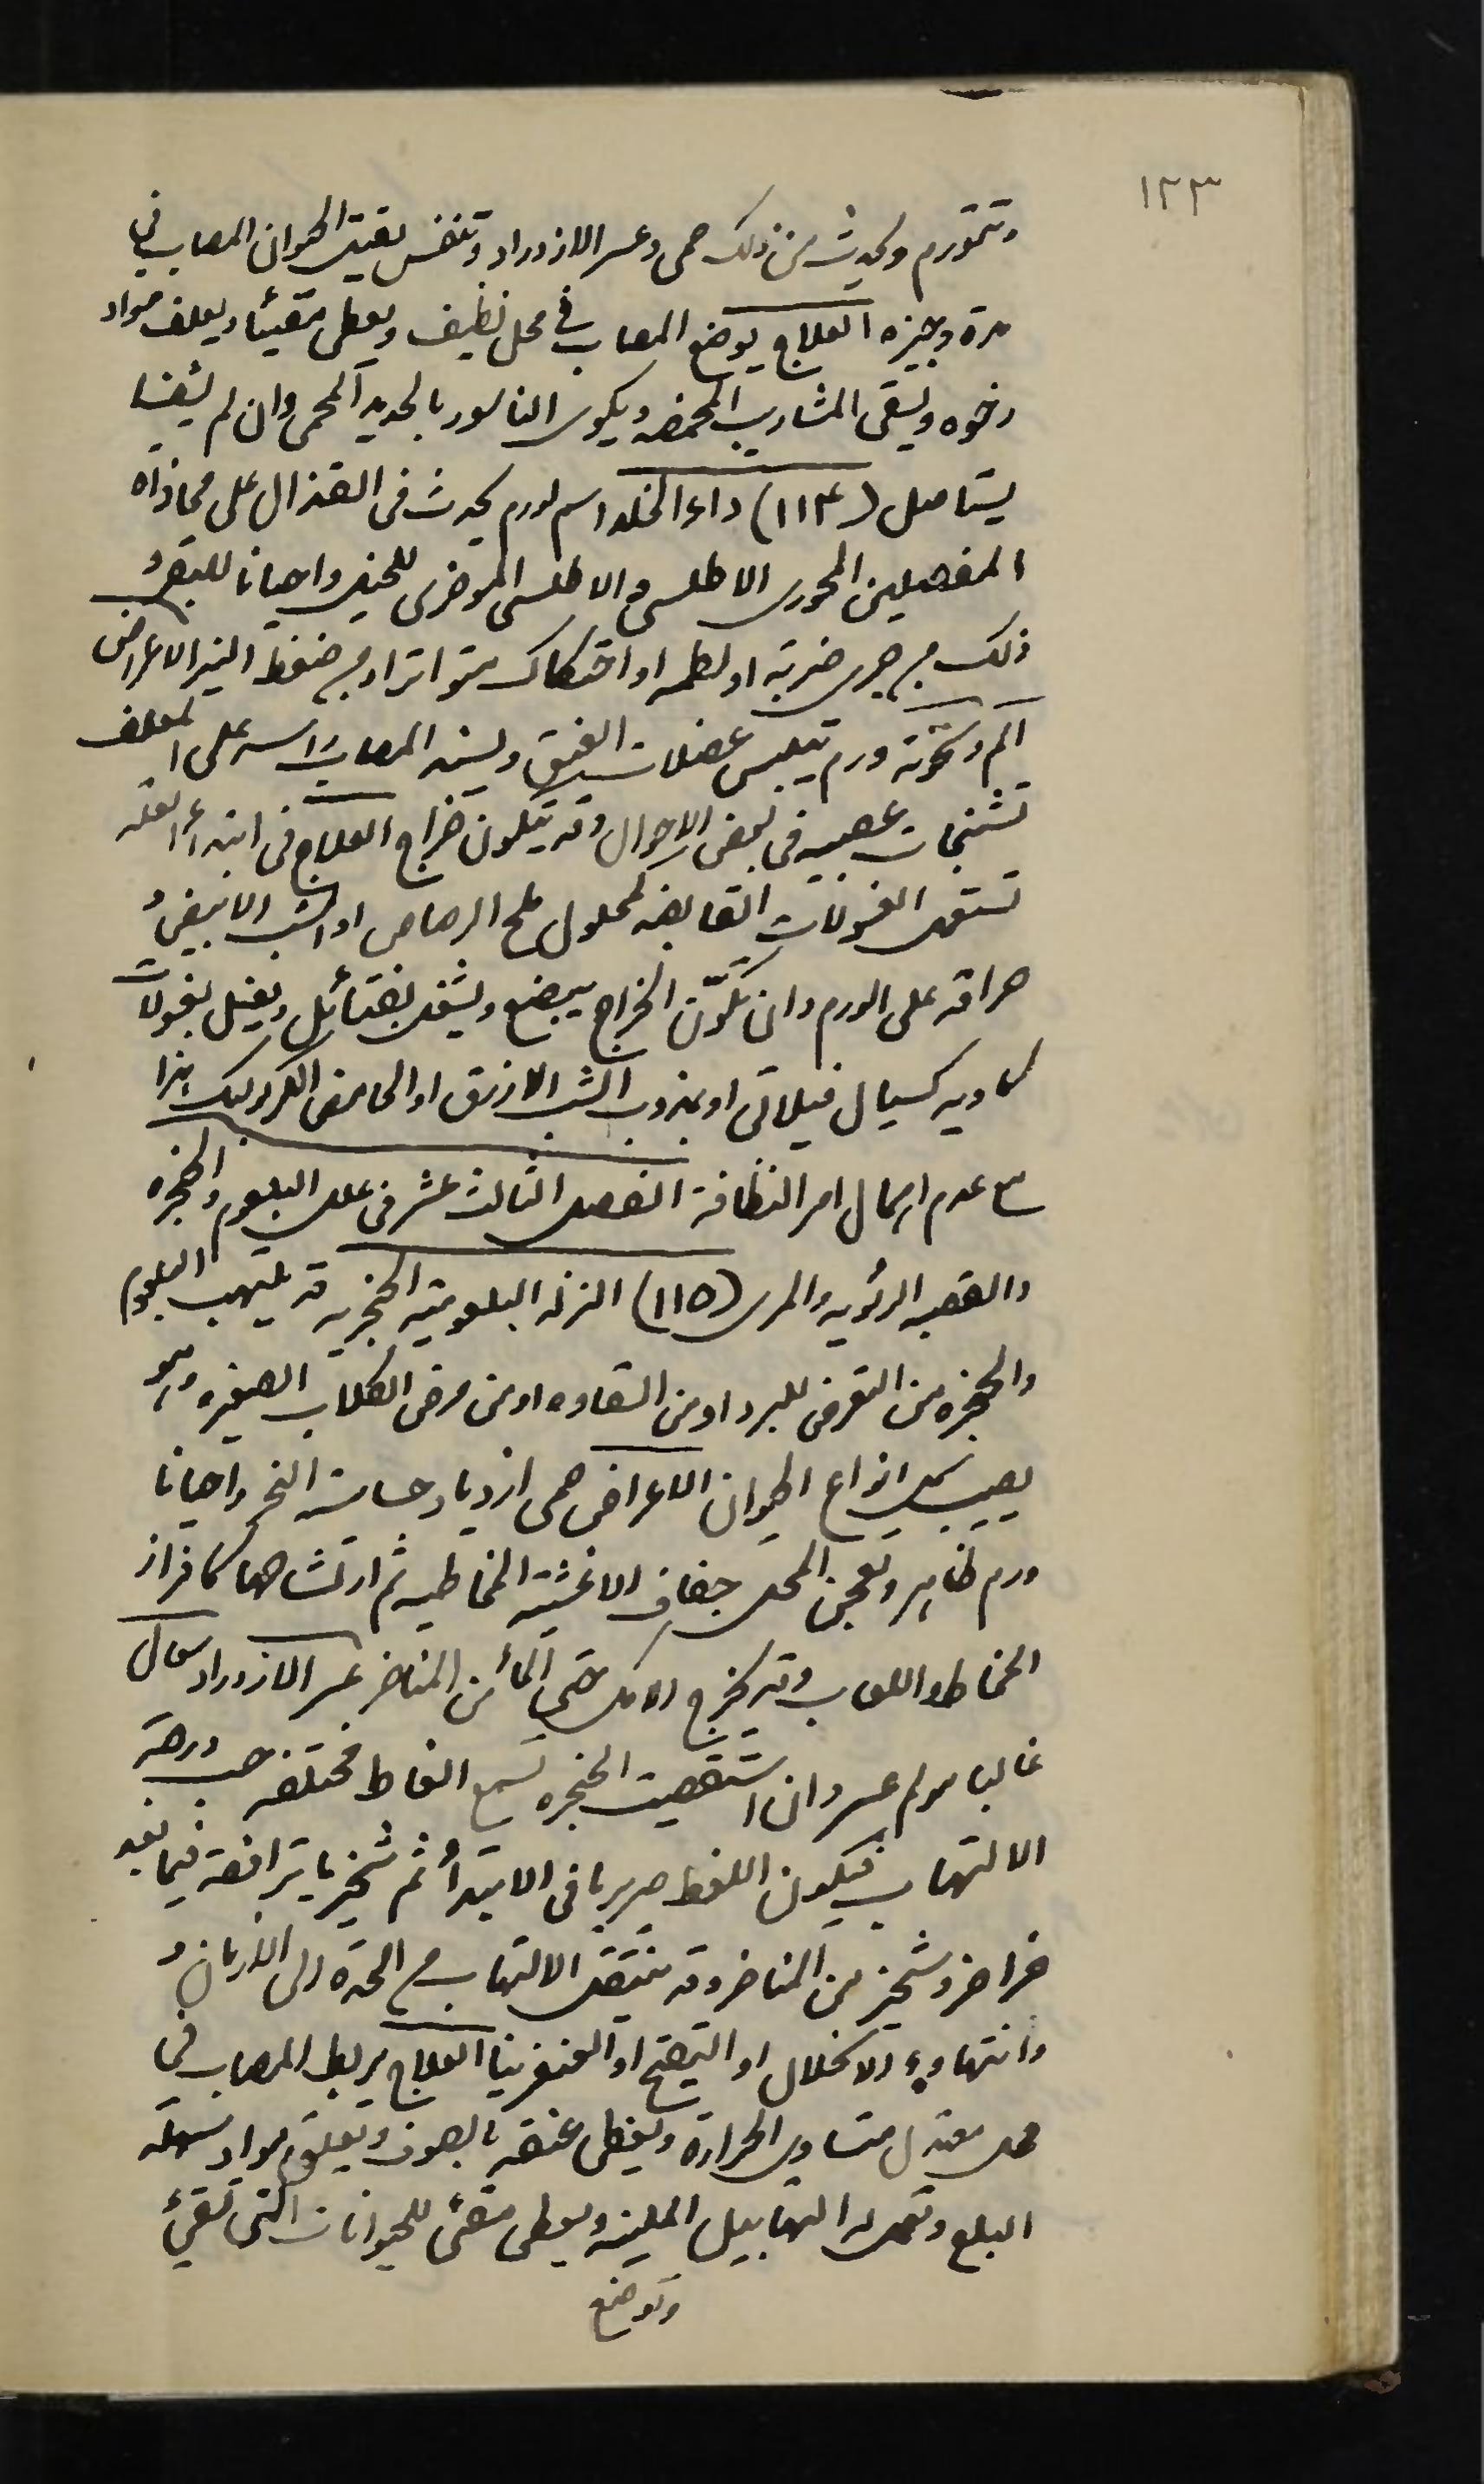 ١٢٣
وتتورم ويحدث من ذلك حمى وعسر الازدراد وتنفس يقتل الحيوان المصاب في
مدة وجيزه العلاج يوضع المصاب في محل نظيف ويعطى مقيئا ويعلف مواد
رخوه ويسقى المشاريب المحمضه ويكوى الناسور بالحديد المحمى وان لم يشف
يستاصل (١١٤) داء الخلد اسم لورم يحدث في القذال على محاذاة
المفصلين المحورى الاطلسى والاطلسى الموخرى للخيل واحيانا للبقر و
ذلك من جرى ضربة او لطمه او احتكاك متواتر او من ضغط النير الاعراض
الم وسخونة ورم تيبس عضلات العنق ويسند المصاب راسه على المعلف
تشنجات عصبيه في بعض الاحوال وقد يتكون خراج العلاج في ابتداء العله
تستعمل الغسولات القابضه كمحلول ملح الرصاص او الشب الابيض و
حراقه على الورم وان تكوّن الخراج يبضع ويشغل بفتائل ويغسل بغسولات
كاويه كسيال فيلاتى او بمذوب الشب الازرق او الحامض الكربوليك هذا
مع عدم اهمال امر النظافة الفصل الثالث عشر في علل البلعوم والحنجره
والقصبه الرئويه والمرى (١١٥) النزله البلعوميه الحنجريه قد يلتهب البلعوم
والحنجره من التعرض للبرد او من السقاوه او من مرض الكلاب الصغيره وهو
يصيب كل انواع الحيوان الاعراض حمى ازدياد حساسة النحر واحيانا
ورم ظاهر وتعجن المحل جفاف الاغشية المخاطيه ثم ارتشاحها كافراز
المخاط واللعاب وقد يخرج الاكل حتى الماء من المناخر عسر الازدراد سعال
غالبا مولم عسر وان استقصيت الحنجره تسمع الغاط مختلفه حسب درجة
الالتهاب فيكون اللغط صريريا في الابتدأ ثم شخيريا يترافقه فيما بعد
خراخر وشخير من المناخر وقد ينتقل الالتهاب من الحدة الى الازمان و
وانتهاوه الانحلال او التقيح او الغنغرينا العلاج يربط المصاب في
محل معتدل متساوى الحرارة ويغطى عنقه بالصوف ويعلف مواد سهلة
البلع وتعمل له التهابيل الملينه ويعطى مقئ للحيوانات التى تقئ
وتوضع